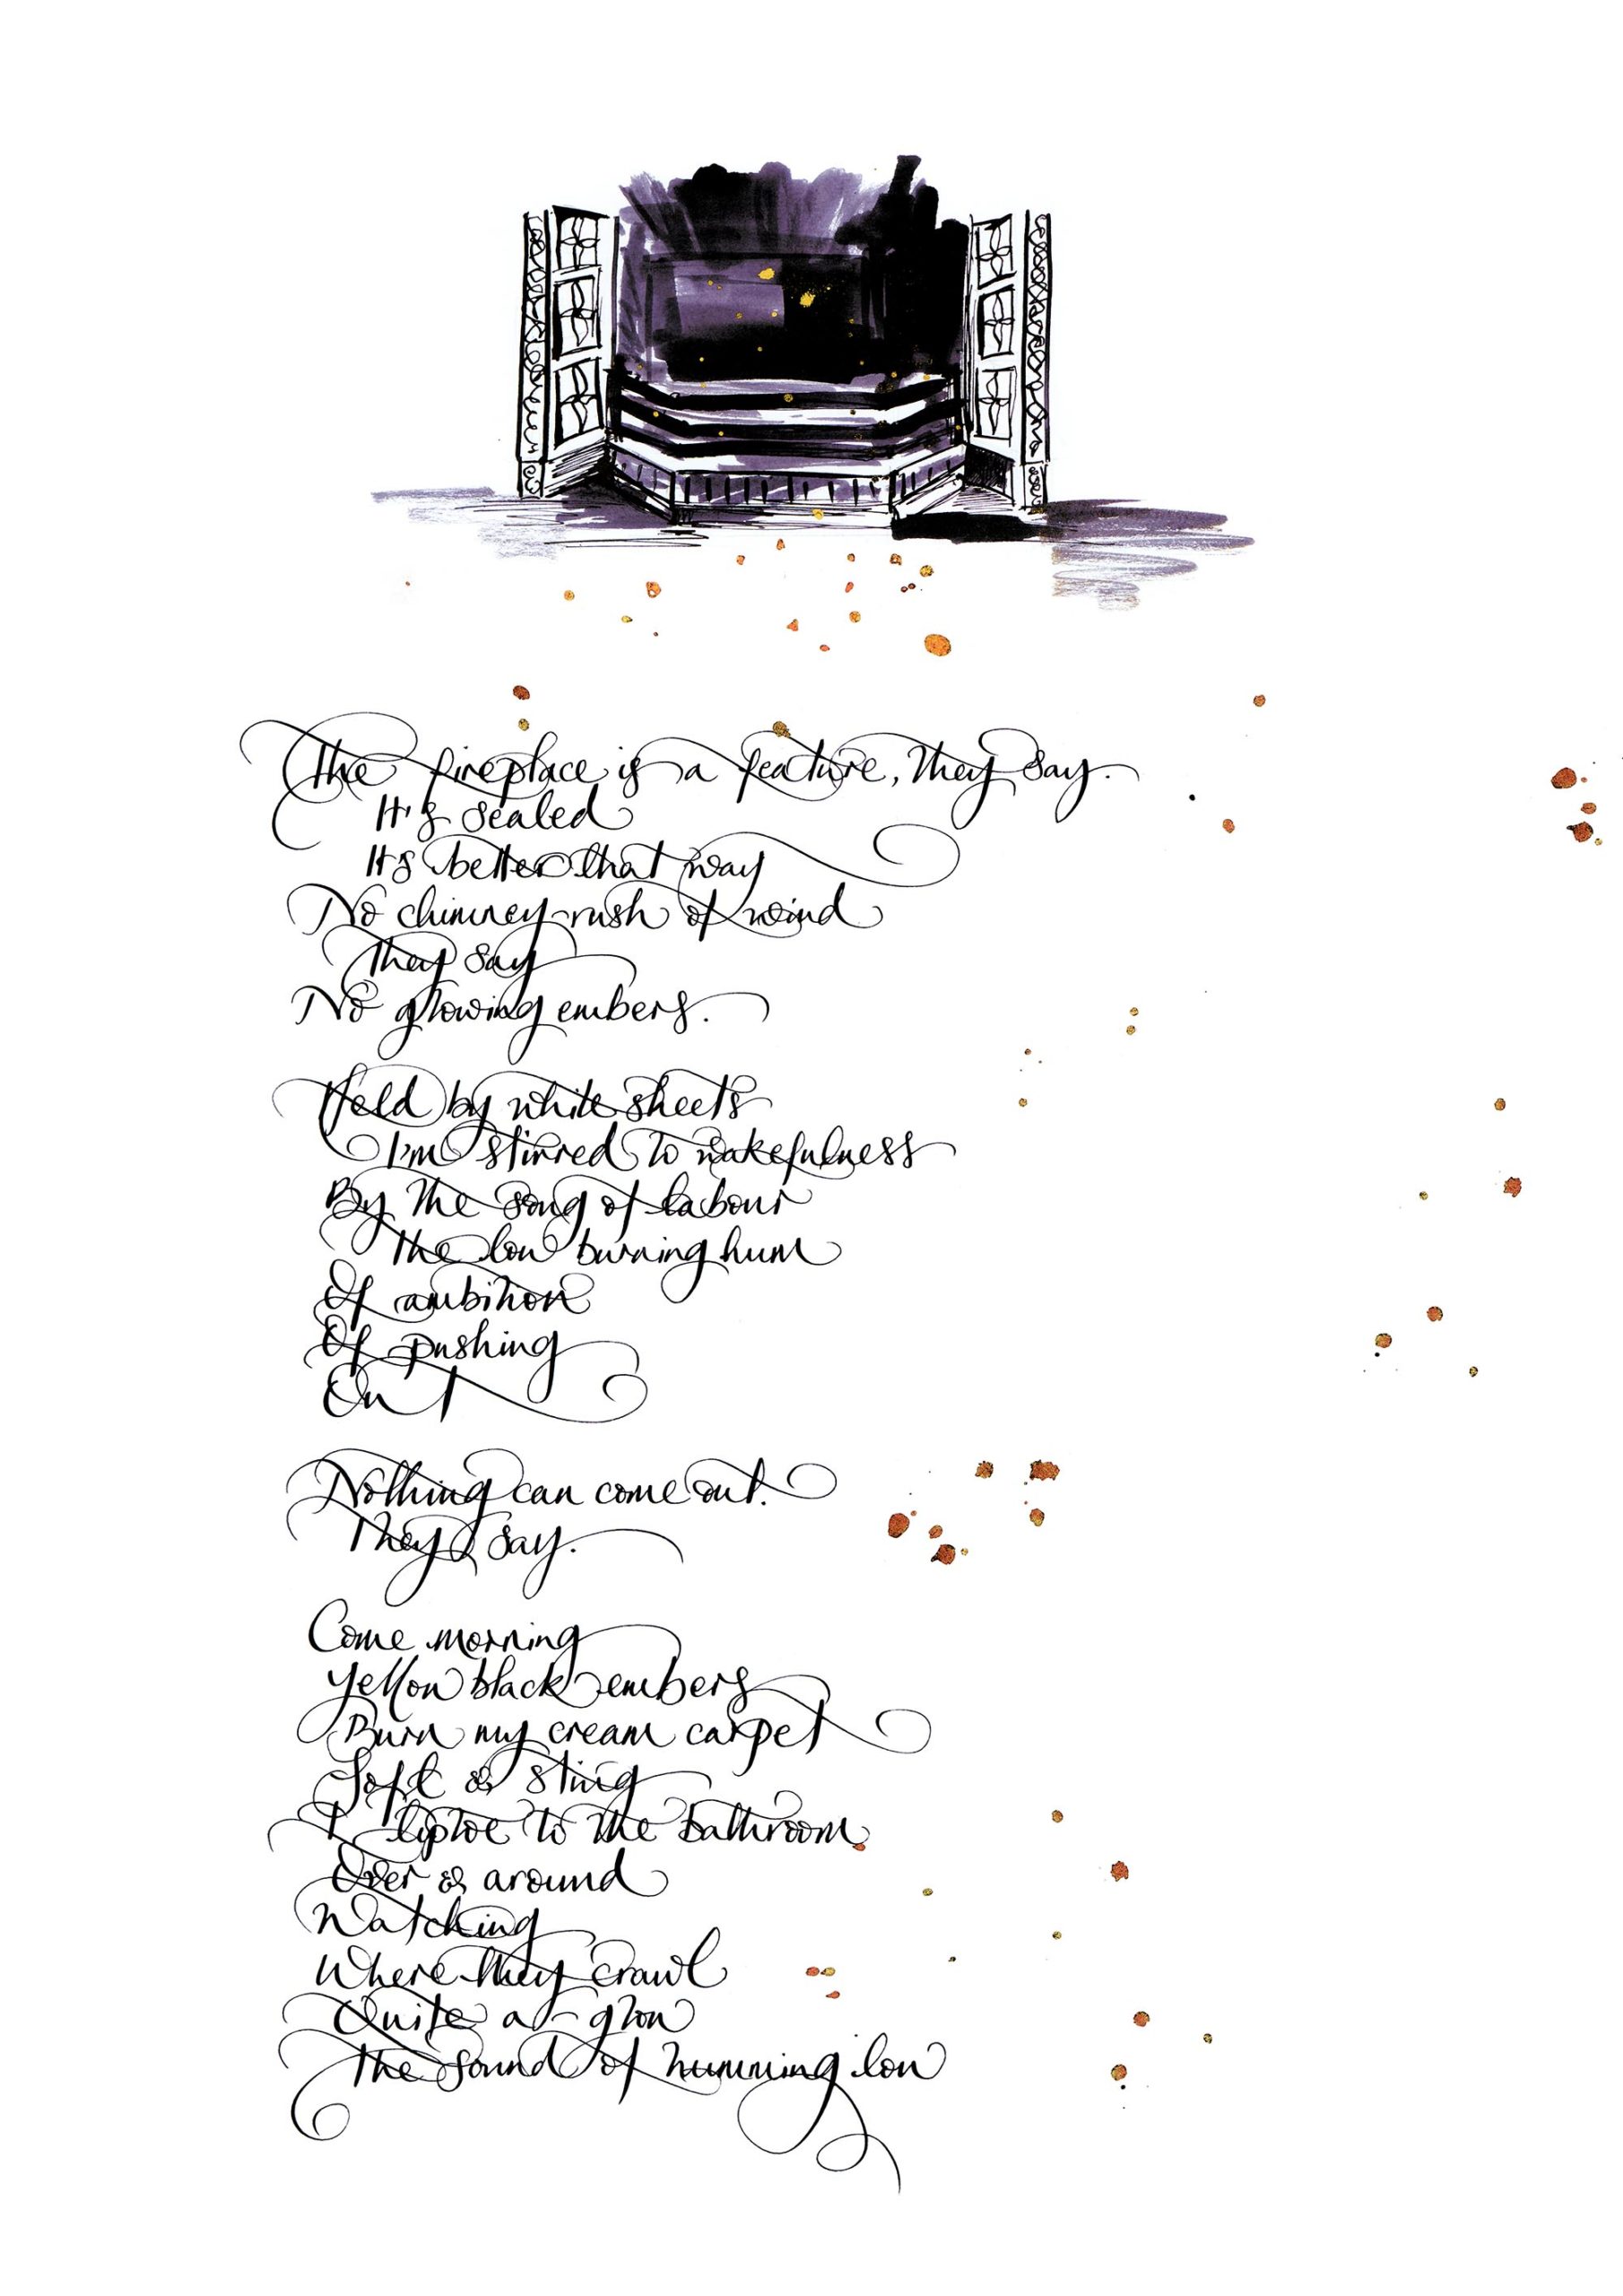 The fireplace is a feature, they say.
It's sealed
It's better that way
No chimney rush of wind
They say
No glowing embers.
Held by white sheets
I'm stirred to wakefulness
By the song of labour
The low burning hum
Of ambition
Of pushing
Out
Nothing can come out.
They say.
Come morning
Yellow black embers
Burn my cream carpet
Soft & sting
I tiptoe to the bathroom
Over & around
Watching
Where they crawl
Quite a-glow
The sound of humming low